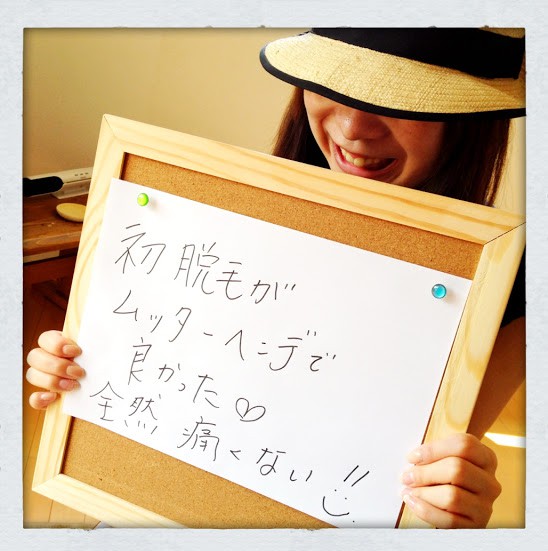 初脱毛が
ムッターヘンデで
良かった♡
全然痛くない!!